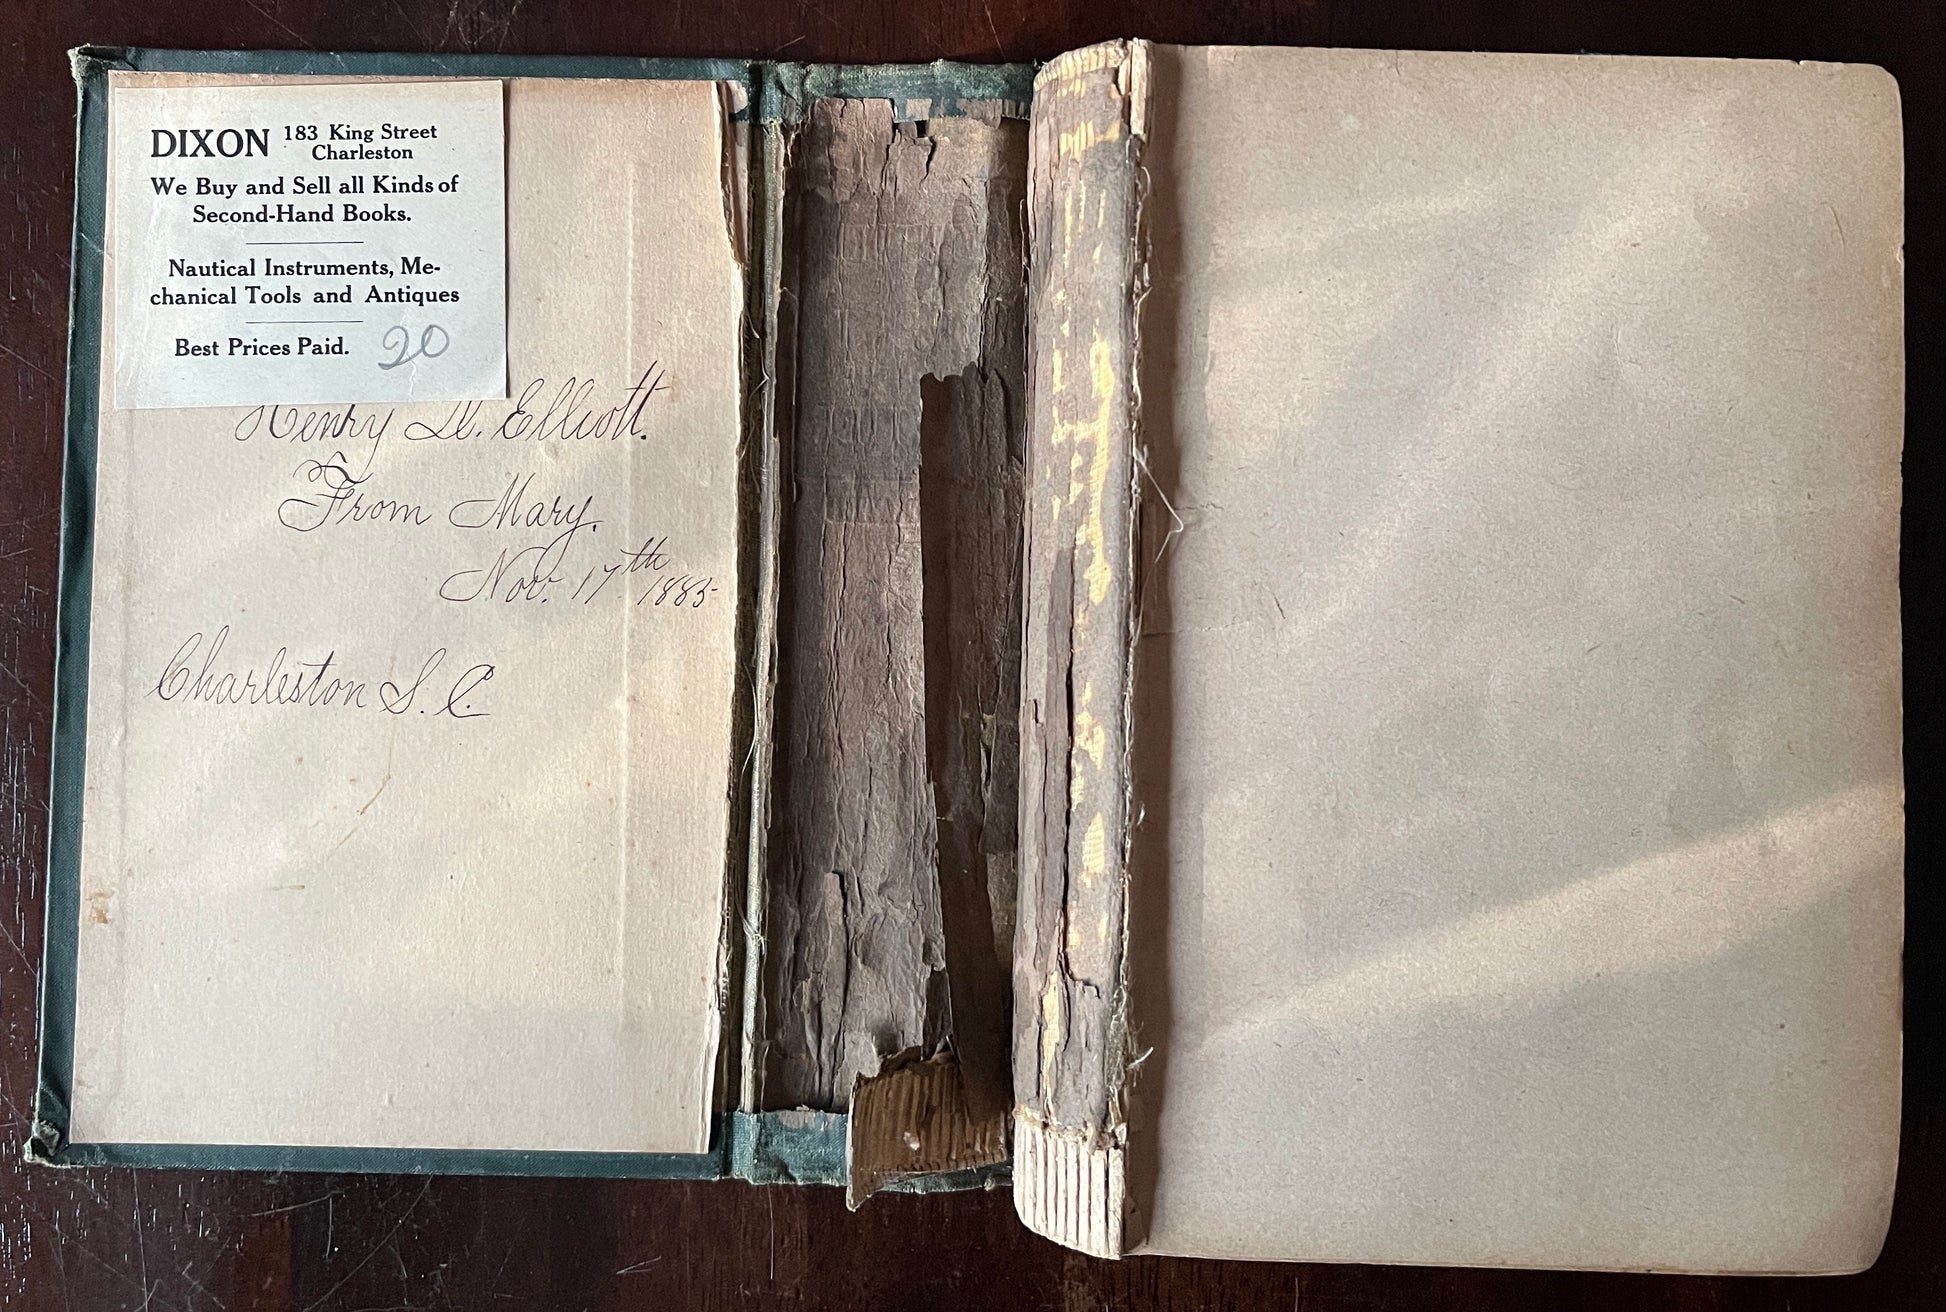 DIXON 183 King Street
Charleston
We Buy and Sell all Kinds of
Second-Hand Books.
Nautical Instruments, Me-
chanical Tools and Antiques
Best Prices Paid. 20
Henry W. Elliott.
From Mary.
Nov. 17th 1885
Charleston S. C.